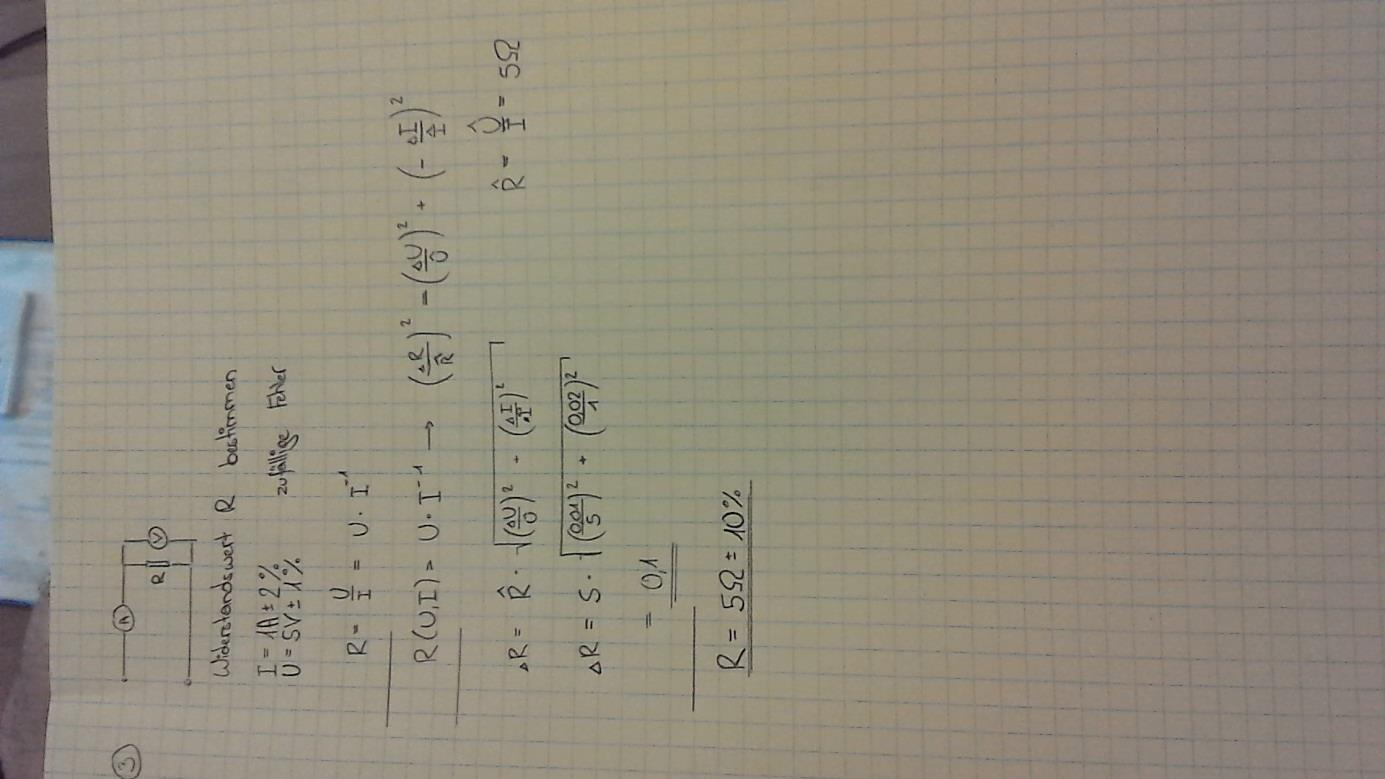 ③
A
R V
Widerstandswert R bestimmen
I = 1A ± 2%
U = 5V ± 1% zufällige Fehler
R = U/I = U · I⁻¹
R(U,I) = U · I⁻¹ → (ΔR/R̂)² = (ΔU/Û)² + (- ΔI/Î)²
ΔR = R̂ · √((ΔU/Û)² + (ΔI/Î)²) R̂ = Û/Î = 5Ω
ΔR = 5 · √((0,01/5)² + (0,02/1)²)
= 0,1
R = 5Ω ± 10%